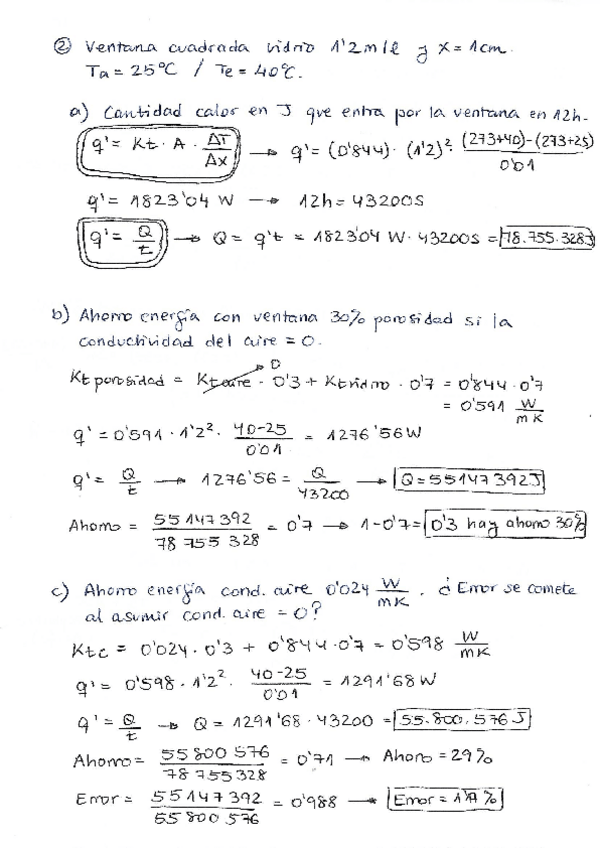 ② Ventana cuadrada vidrio 1'2m/l y x = 1cm.
Ta = 25ºC / Te = 40ºC.
a) Cantidad calor en J que entra por la ventana en 12h.
q' = Kt · A · ΔT/Δx → q' = (0'844) · (1'2)² · (273+40)-(273+25)/0'01
q' = 1823'04 W → 12h = 43200s
q' = Q/t → Q = q't = 1823'04 W · 43200s = 78.755.328J
b) Ahorro energía con ventana 30% porosidad si la
conductividad del aire = 0.
Kt porosidad = Kt aire · 0'3 + Kt vidrio · 0'7 = 0'844 · 0'7
0
= 0'591 W/mK
q' = 0'591 · 1'2² · 40-25/0'01 = 1276'56W
q' = Q/t → 1276'56 = Q/43200 → Q = 55147392J
Ahorro = 55147392/78755328 = 0'7 → 1-0'7 = 0'3 hay ahorro 30%
c) Ahorro energía cond. aire 0'024 W/mK. ¿Error se comete
al asumir cond. aire = 0?
Ktc = 0'024 · 0'3 + 0'844 · 0'7 = 0'598 W/mK
q' = 0'598 · 1'2² · 40-25/0'01 = 1291'68W
q' = Q/t → Q = 1291'68 · 43200 = 55.800.576 J
Ahorro = 55800576/78755328 = 0'71 → Ahorro = 29%
Error = 55147392/55800576 = 0'988 → Error = 1'17%